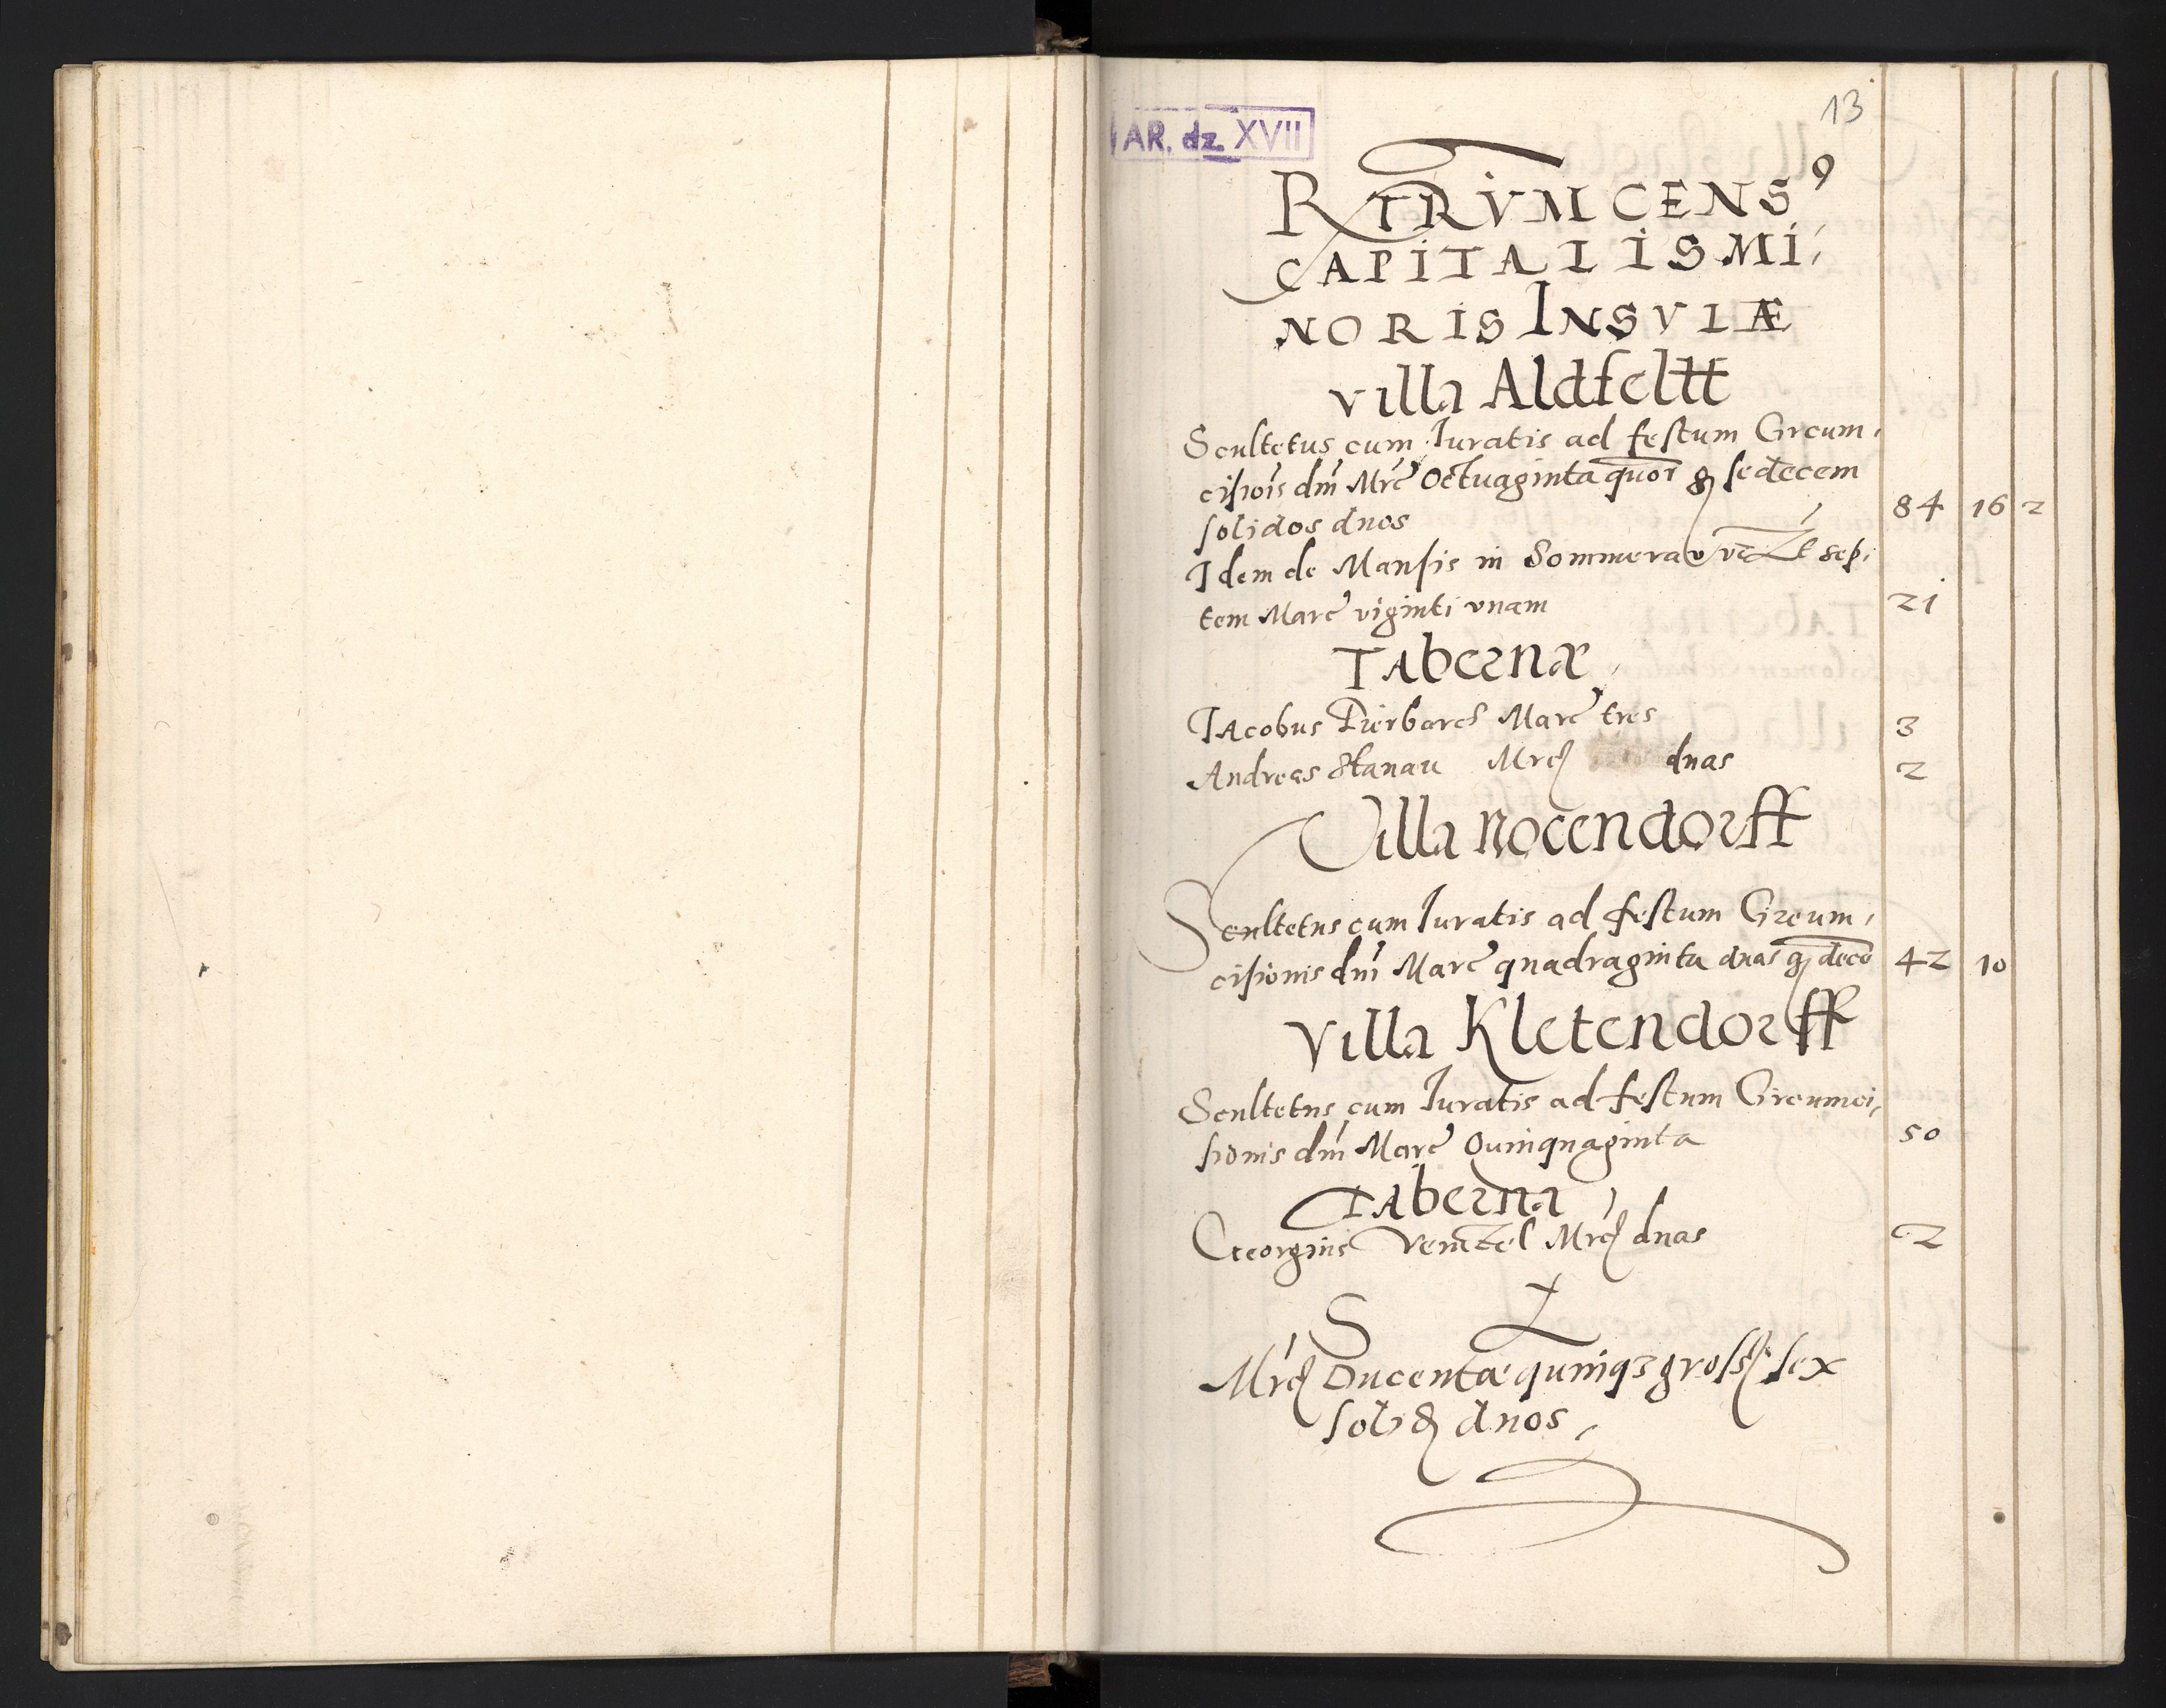 13
AR. dz. XVII
RTRVM CENS9
CAPITALIS MI,
NORIS INSVLÆ
Villa Aldfeltt
Scultetus cum Iuratis ad festum Circum,
cisiois dni Mrc Octuaginta quor g sedecem
solidos duos 84 16 2
Idem de Mansis in Sommerau sep,
tem Marc viginti vnam 21
Tabernæ
Jacobus Dierbarch Marc tres 3
Andreas Stanau Mrc duas 2
Villa Rocendorff
Scultetus cum Iuratis ad festum Circum,
cisionis dni Marc quadraginta duas g dece 42 10
Villa Kletendorff
Scultetus cum Iuratis ad festum Circumci,
sionis dni Marc Quinquaginta 50
Taberna
Georgius Venczel Mrc duas 2
S
Mrc Ducentæ quinq3 gross sex
solid duos